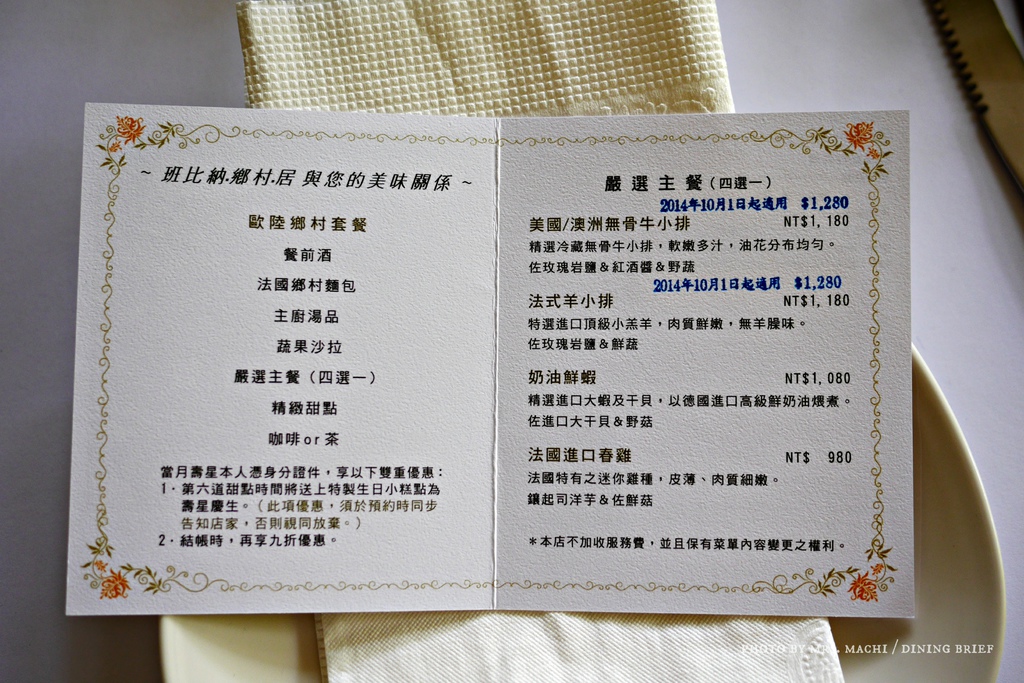 ~ 班比納.鄉村.居 與您的美味關係 ~
歐陸鄉村套餐
餐前酒
法國鄉村麵包
主廚湯品
蔬果沙拉
嚴選主餐（四選一）
精緻甜點
咖啡or茶
當月壽星本人憑身分證件，享以下雙重優惠：
1．第六道甜點時間將送上特製生日小糕點為
壽星慶生。（此項優惠，須於預約時同步
告知店家，否則視同放棄。）
2．結帳時，再享九折優惠。
嚴選主餐（四選一）
2014年10月1日起適用 $1,280
美國/澳洲無骨牛小排 NT$1,180
精選冷藏無骨牛小排，軟嫩多汁，油花分布均勻。
佐玫瑰岩鹽＆紅酒醬＆野蔬
2014年10月1日起適用 $1,280
法式羊小排 NT$1,180
特選進口頂級小羔羊，肉質鮮嫩，無羊臊味。
佐玫瑰岩鹽＆鮮蔬
奶油鮮蝦 NT$1,080
精選進口大蝦及干貝，以德國進口高級鮮奶油煨煮。
佐進口大干貝＆野菇
法國進口春雞 NT$ 980
法國特有之迷你雞種，皮薄、肉質細嫩。
鑲起司洋芋＆佐鮮菇
＊本店不加收服務費，並且保有菜單內容變更之權利。
PHOTO BY MRS. MACHI / DINING BRIEF